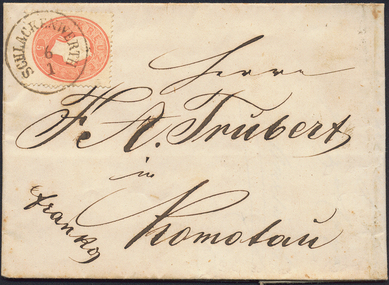 SCHLACKENWERTH
6
1
Herrn
F. A. Trübert
in
Komotau
Franko